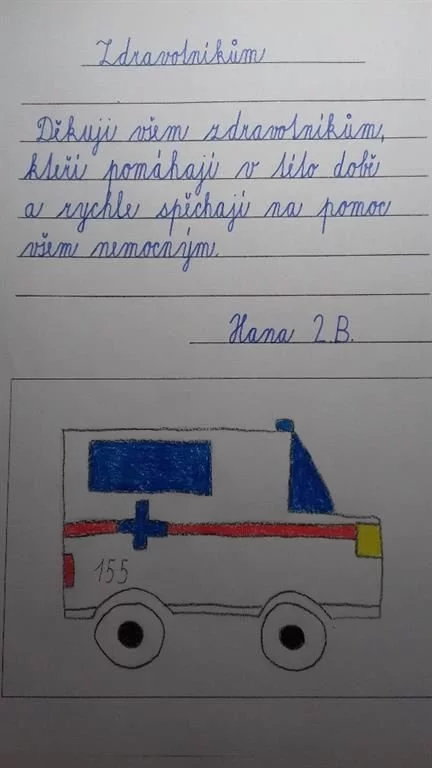 Zdravotníkům
Děkuji všem zdravotníkům,
kteří pomáhají v této době
a rychle spěchají na pomoc
všem nemocným.
Hana 2.B.
155